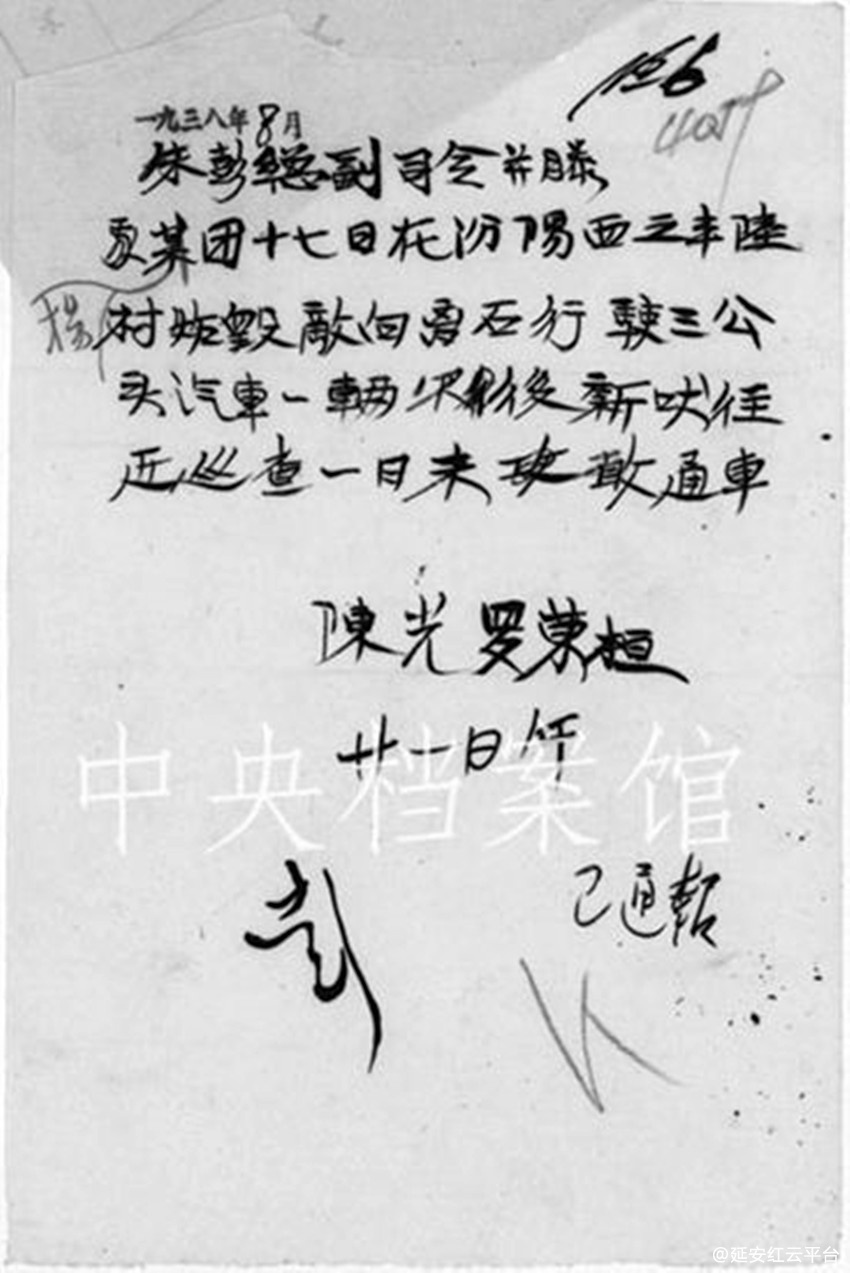 一九三八年8月
朱彭總副司令并滕
某团十七日在汾陽西之丰陸
楊
村炸毀敵向离石行駛三公
头汽車一輛 後 新 往
近巡查一日未 敢通車
陳光 罗荣桓
廿一日
彭
已通報
中央档案馆
@延安红云平台